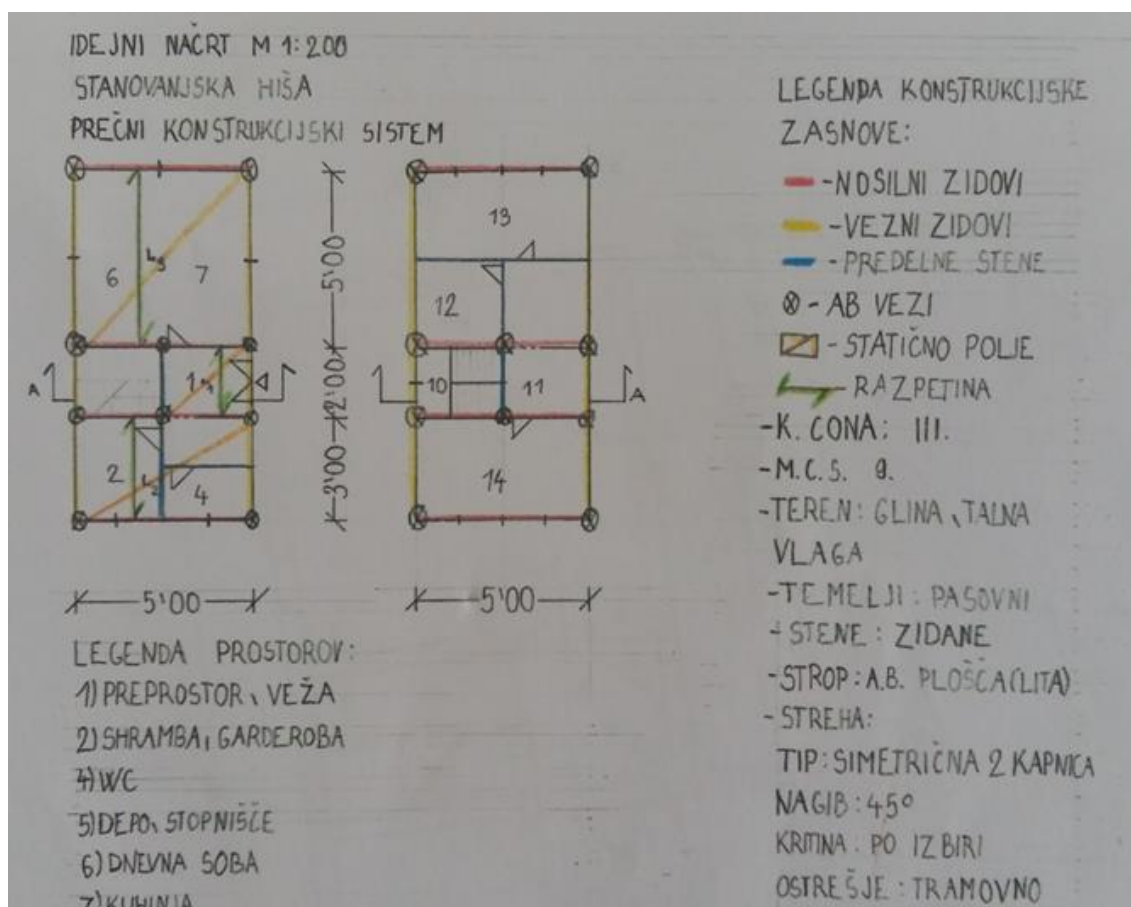 IDEJNI NAČRT M 1:200
STANOVANJSKA HIŠA
PREČNI KONSTRUKCIJSKI SISTEM
6
7
L3
1
L1
2
L2
4
A
5'00
2'00
3'00
5'00
13
12
10
11
14
A
5'00
LEGENDA PROSTOROV:
1) PREPROSTOR, VEŽA
2) SHRAMBA, GARDEROBA
4) WC
5) DEPO, STOPNIŠČE
6) DNEVNA SOBA
7) KUHINJA
LEGENDA KONSTRUKCIJSKE
ZASNOVE:
- NOSILNI ZIDOVI
- VEZNI ZIDOVI
- PREDELNE STENE
- AB VEZI
- STATIČNO POLJE
- RAZPETINA
- K. CONA: III.
- M.C.S. 9.
- TEREN: GLINA, TALNA
VLAGA
- TEMELJI: PASOVNI
- STENE: ZIDANE
- STROP: A.B. PLOŠČA (LITA)
- STREHA:
TIP: SIMETRIČNA 2 KAPNICA
NAGIB: 45°
KRITINA: PO IZBIRI
OSTREŠJE: TRAMOVNO